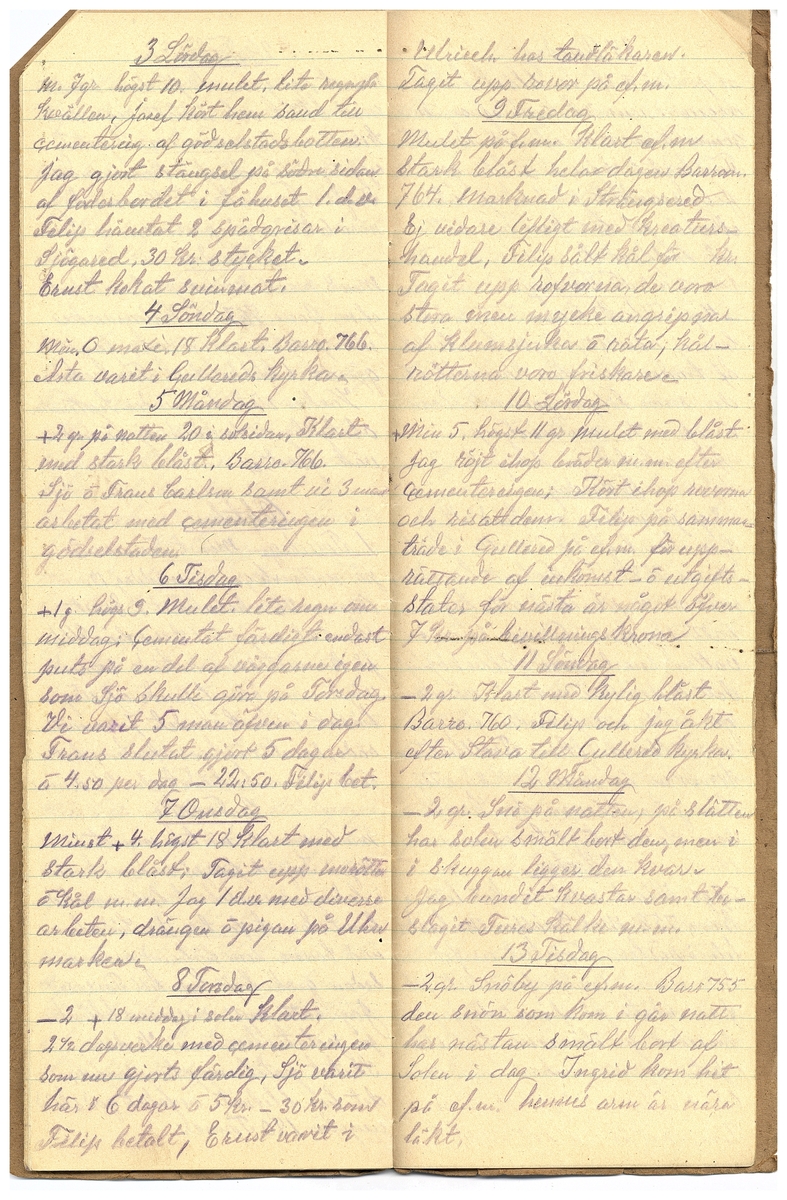 3 Lördag
m. 7 gr. högst 10. mulet, lite regn på
kvällen, Josef kört hem sand till
cementering af gödselstadsbotten.
Jag gjort stängsel på södra sidan
af foderbordet i fähuset 1. d.v.
Filip hämtat 2 spädgrisar i
Sjögared, 30 kr. stycket.
Ernst kokat svinmat.
4 Söndag
Min. 0 max. 18 Klart. Barro. 766.
Asta varit i Gullereds kyrka.
5 Måndag
+2 gr. på natten 20 i solsidan, Klart
med stark blåst, Barro. 766.
Sjö o Frans Carlson samt vi 3 man
arbetat med cementeringen i
gödselstaden
6 Tisdag
+1 g. högs 9. Mulet. lite regn om
middag; Cementat färdigt endast
puts på en del af väggarne igen
som Sjö skulle göra på Torsdag.
Vi varit 5 man äfven i dag.
Frans slutat gjort 5 dagar
á 4.50 per dag – 22:50. Filip bet.
7 Onsdag
Minst +4. högst 18 Klart med
stark blåst; Tagit upp morötter
o kål m.m. Jag 1 dv med diverse
arbeten, drängen o pigan på Uhre
marken.
8 Torsdag
–2 +18 middag i solen Klart.
2 1/2 dagsverke med cementeringen
som nu gjorts färdig, Sjö varit
här i 6 dagar á 5 kr. – 30 kr. som
Filip betalt, Ernst varit i
Ulriceh. hos tandläkaren.
Tagit upp rovor på ef.m.
9 Fredag
Mulet på f.m. Klart ef.m
stark blåst hela dagen Barrom.
764. Marknad i Strängsered
Ej vidare lifligt med kreaturs-
handel, Filip sålt kål för kr.
Tagit upp rofvorna, de voro
stora men mycke angripna
af klumsjuka o röta; kål-
rötterna voro friskare.
10 Lördag
+Min 5, högst 11 gr mulet med blåst.
Jag röjt ihop bräder m.m. efter
cementeringen; Kört ihop rovorna
och risat dem. Filip på samman-
träde i Gullered på ef.m. för upp-
rättande af inkomst- o utgifts-
stater för nästa år något öfver
7 kr. på bevillningskrona
11 Söndag
–2 gr. Klart med kylig blåst
Barro. 760. Filip och jag åkt
efter Stava till Gullered kyrka.
12 Måndag
–2 gr. Snö på natten, på slätten
har solen smält bort den, men i
i skuggan ligger den kvar.
Jag bundit kvastar samt
slagit Tures kälke m.m.
13 Tisdag
–2 gr. Snöby på ef.m. Barr 755
den snön som kom i går natt
har nästan smält bort af
Solen i dag. Ingrid kom hit
på ef.m. hennes arm är nära
läkt.